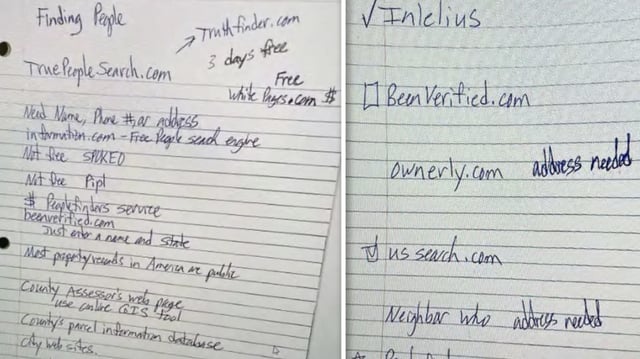 Finding People
Truthfinder.com
3 days free
TruePeopleSearch.com
Free
White Pages.com $
Need Name, Phone # or address
information.com - Free People search engine
Not free SPOKEO
Not free Pipl
$ Peoplefinders service
beenverified.com
Just enter a name and state
Most property records in America are public
County Assessor's web page
use online GIS tool
County's parcel information database
city web sites.
✓ Intelius
BeenVerified.com
ownerly.com address needed
us search.com
Neighbor who address needed